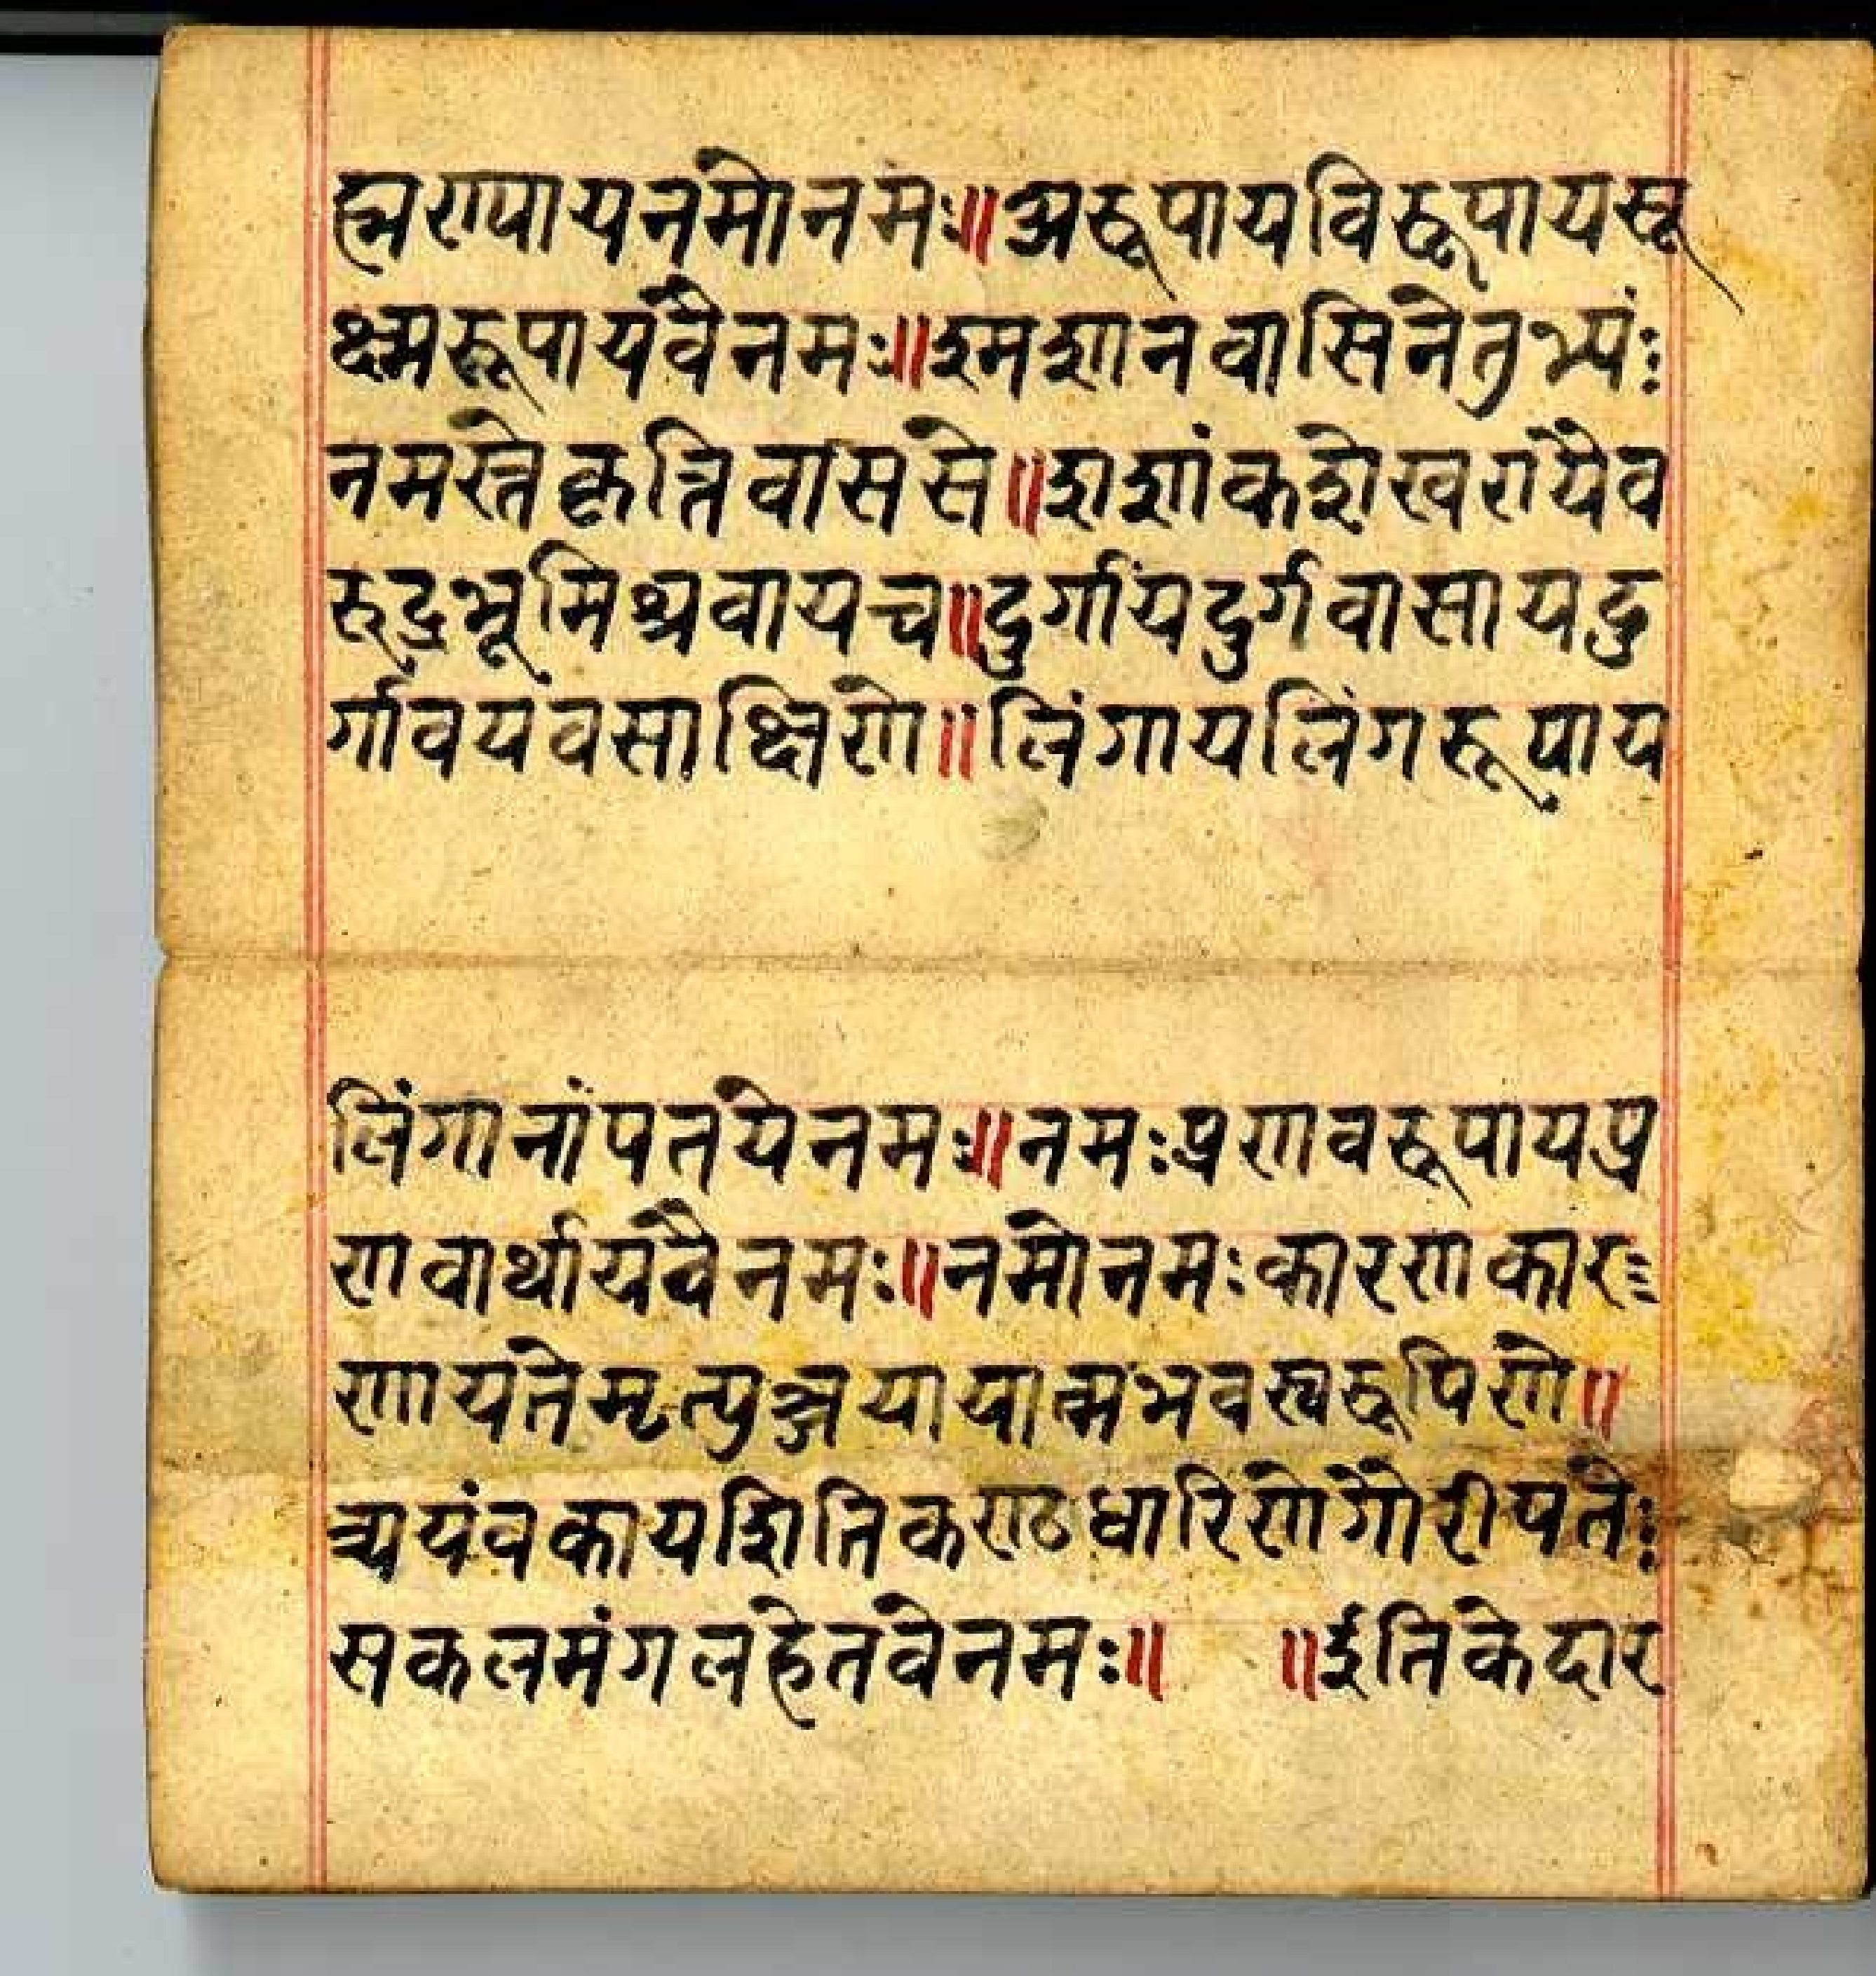 ह्मरापायनमोनमः॥अरूपायविरूपायसू
क्ष्मरूपायवैनमः॥श्मशानवासिनेतुभ्यंः
नमस्तेकृत्तिवाससे॥शशांकशेखरायैव
रुद्रभूमिश्रवायच॥दुर्गायदुर्गवासायदु
र्गावयवसाक्षिणे॥लिंगायलिंगरूपाय
लिंगानांपतयेनमः॥नमःप्रणवरूपायप्र
णवार्थायवैनमः॥नमोनमःकारणकार
णायतेमृत्युञ्जयायात्मभवस्वरूपिणे॥
त्र्ययंवकायशितिकण्ठधारिणेगौरीपतेः
सकलमंगलहेतवेनमः॥ ॥ईतिकेदार